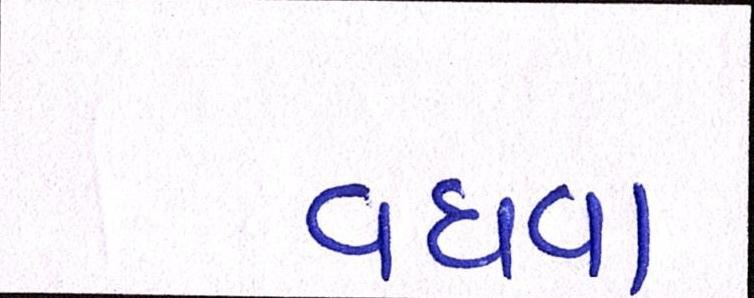 વધવા